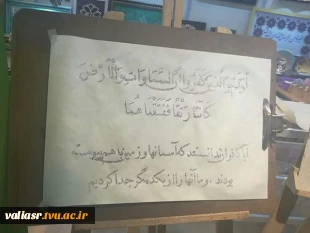 أولم ير الذين كفروا أن السماوات والأرض
كانتا رتقا ففتقناهما
آیا کافران ندانستند که آسمانها و زمین باهم پیوسته
بودند، و ما آنها را از یکدیگر جدا کردیم
valiasr.tvu.ac.ir